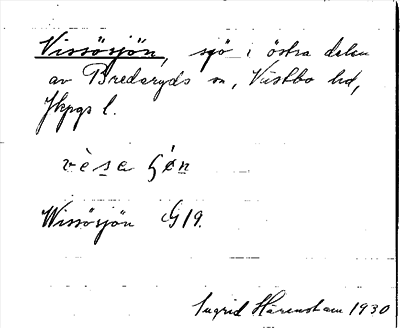 Vissösjön, sjö i östra delen
av Bredaryds sn, Västbo hd,
Jkpgs l.
vèsa ʃǿn
Wissösjön G 19.
Ingrid Härenstam 1930